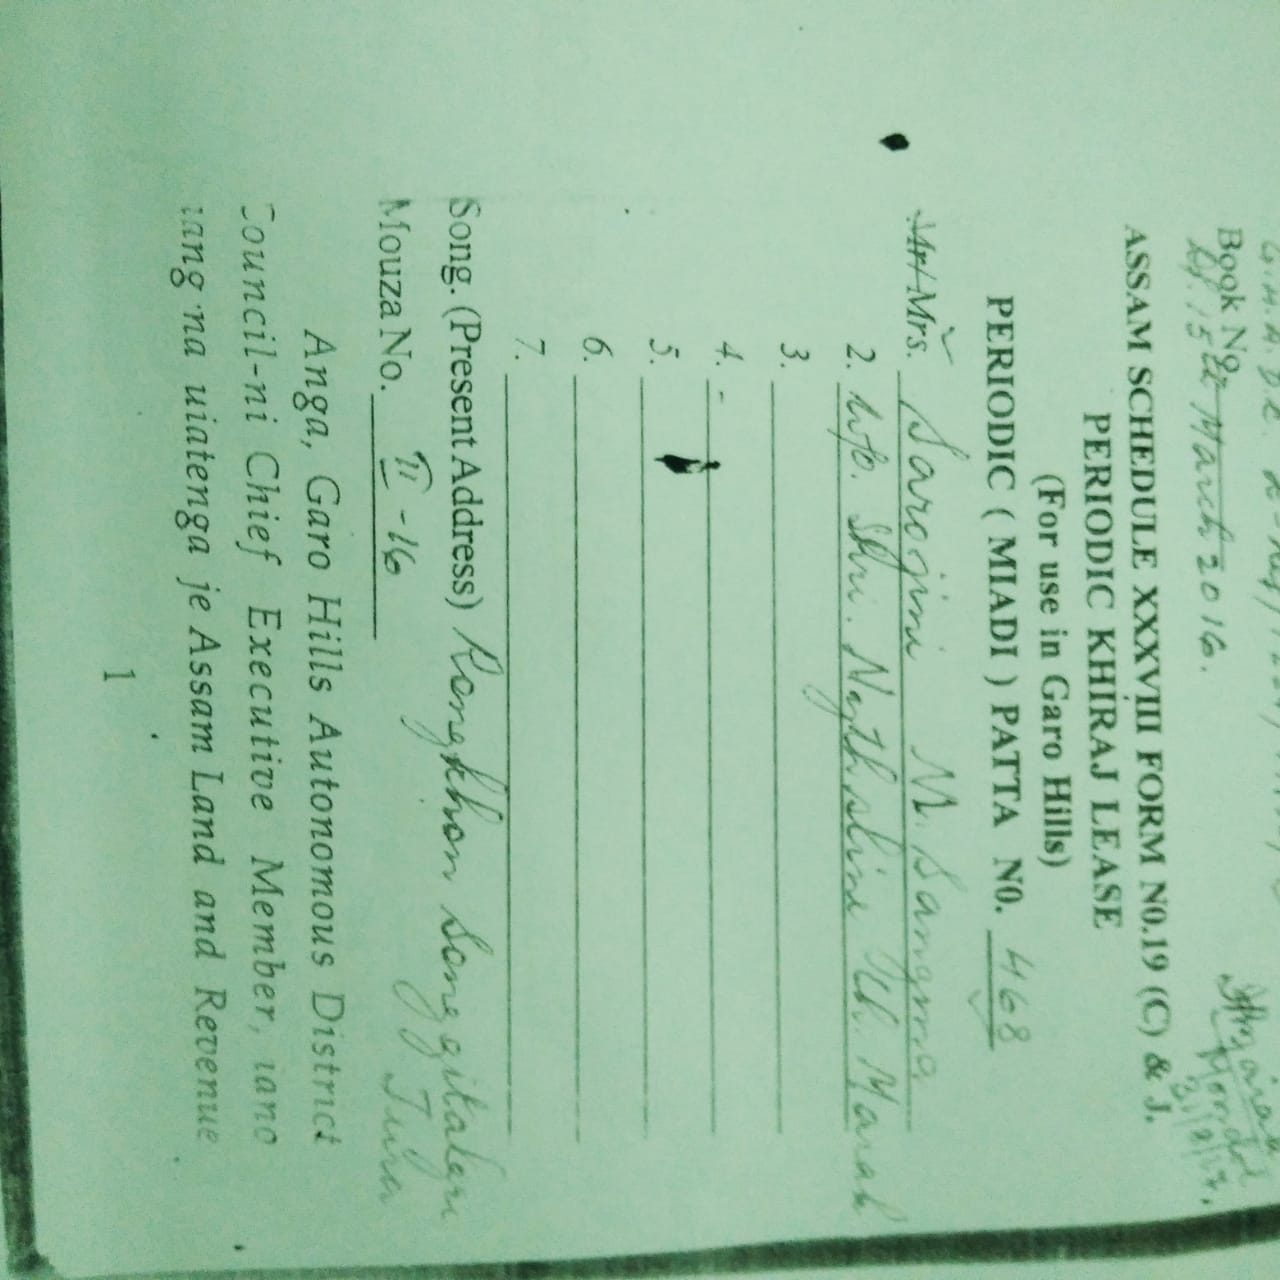 Book No.
Dt. 15th March 2016.
ASSAM SCHEDULE XXXVIII FORM N0.19 (C) & J.
PERIODIC KHIRAJ LEASE
(For use in Garo Hills)
PERIODIC ( MIADI ) PATTA N0. 468
Mr/Mrs. Sarojini M. Sangma
2. W/o. Shri. Ch. Marak
3.
4. -
5.
6.
7.
Song. (Present Address) Rongkhon Songgitalgre
Tura
Mouza No. II-16
Anga, Garo Hills Autonomous District
Council-ni Chief Executive Member, iano
iang·na uiatenga je Assam Land and Revenue
1